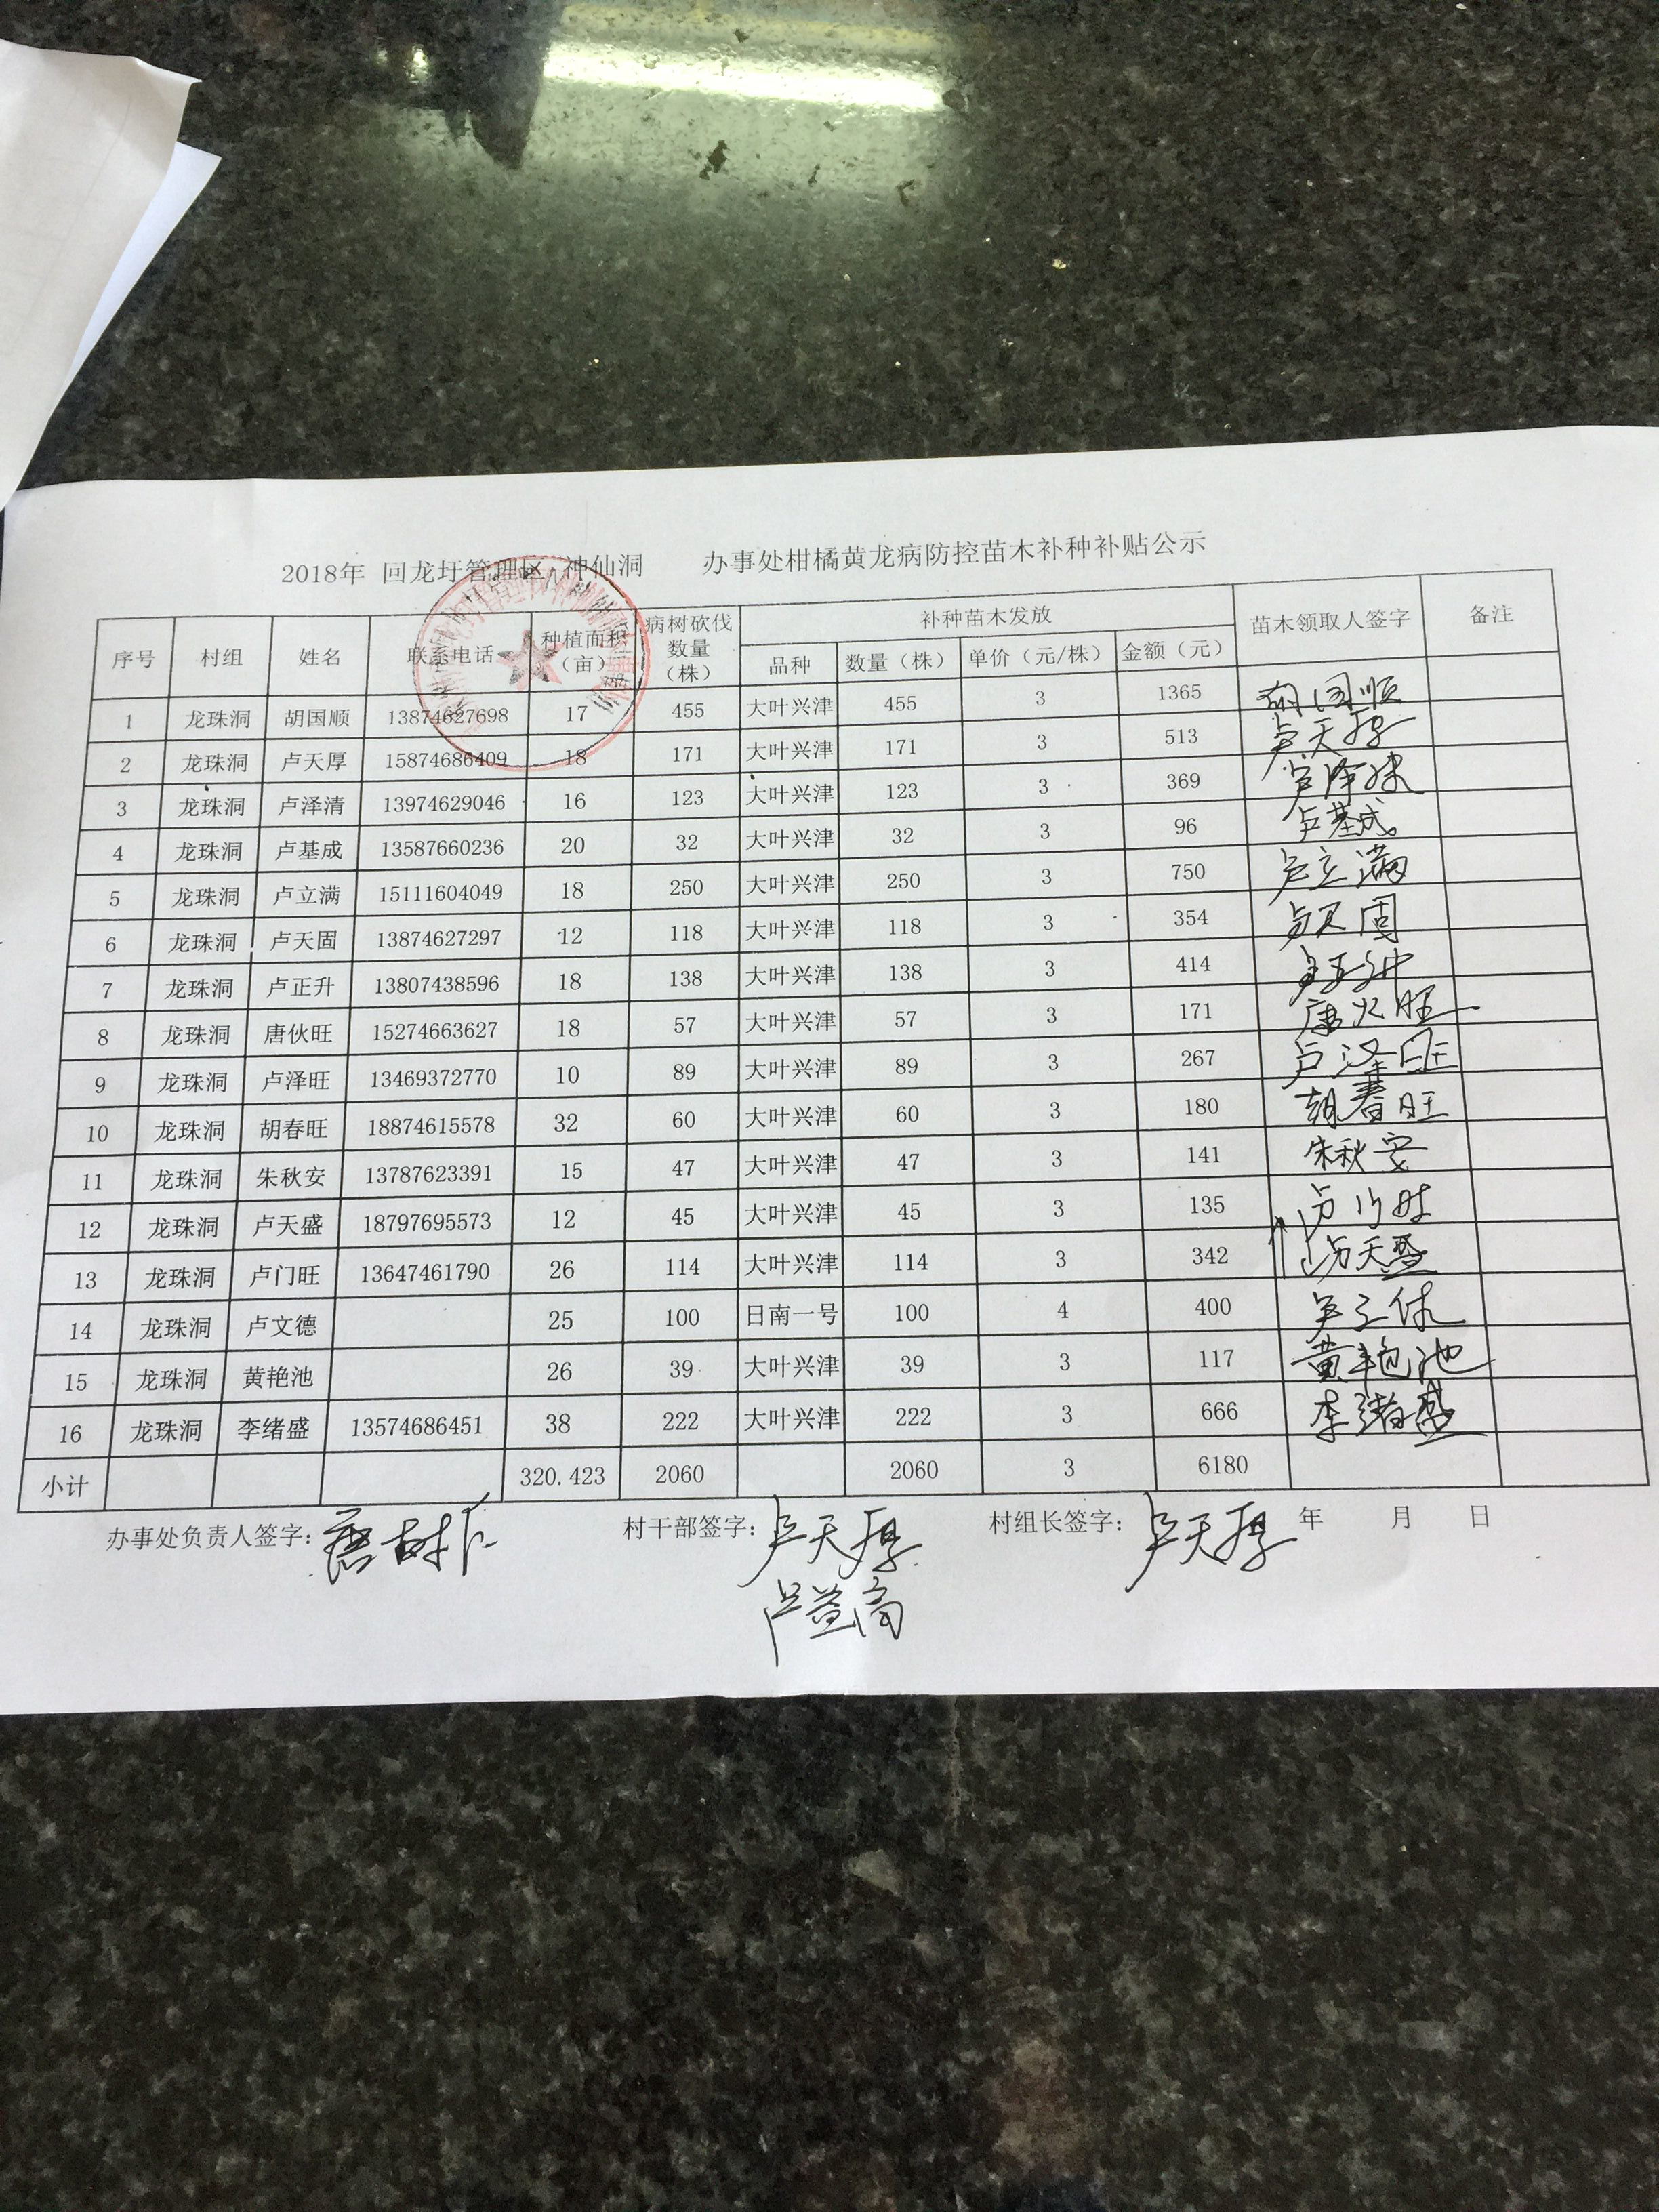 2018年 回龙圩管理区 神仙洞 办事处柑橘黄龙病防控苗木补种补贴公示
序号 村组 姓名 联系电话 种植面积（亩） 病树砍伐数量（株） 补种苗木发放 苗木领取人签字 备注
品种 数量（株） 单价（元/株） 金额（元）
1 龙珠洞 胡国顺 13874627698 17 455 大叶兴津 455 3 1365 胡国顺
2 龙珠洞 卢天厚 15874686409 18 171 大叶兴津 171 3 513 卢天厚
3 龙珠洞 卢泽清 13974629046 16 123 大叶兴津 123 3 369
4 龙珠洞 卢基成 13587660236 20 32 大叶兴津 32 3 96 卢基成
5 龙珠洞 卢立满 15111604049 18 250 大叶兴津 250 3 750 卢立满
6 龙珠洞 卢天固 13874627297 12 118 大叶兴津 118 3 354 卢天固
7 龙珠洞 卢正升 13807438596 18 138 大叶兴津 138 3 414
8 龙珠洞 唐伙旺 15274663627 18 57 大叶兴津 57 3 171 唐火旺
9 龙珠洞 卢泽旺 13469372770 10 89 大叶兴津 89 3 267 卢泽旺
10 龙珠洞 胡春旺 18874615578 32 60 大叶兴津 60 3 180 胡春旺
11 龙珠洞 朱秋安 13787623391 15 47 大叶兴津 47 3 141 朱秋安
12 龙珠洞 卢天盛 18797695573 12 45 大叶兴津 45 3 135
13 龙珠洞 卢门旺 13647461790 26 114 大叶兴津 114 3 342 卢天盛
14 龙珠洞 卢文德 25 100 日南一号 100 4 400
15 龙珠洞 黄艳池 26 39 大叶兴津 39 3 117 黄艳池
16 龙珠洞 李绪盛 13574686451 38 222 大叶兴津 222 3 666 李绪盛
小计 320.423 2060 2060 3 6180
办事处负责人签字： 村干部签字：卢天厚 村组长签字：卢天厚 年 月 日
卢益高